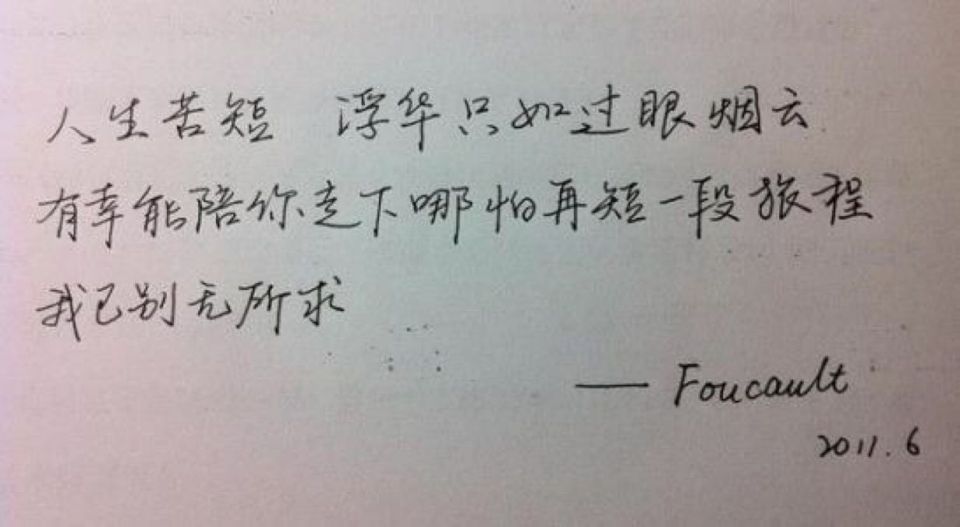 人生苦短 浮华只如过眼烟云
有幸能陪你走下哪怕再短一段旅程
我已别无所求
—— Foucault
2011.6